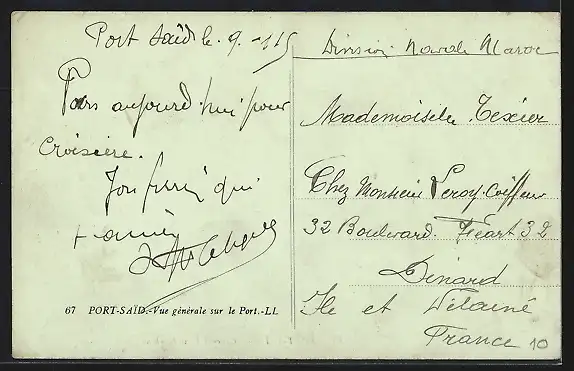 Port Saïd le 9. -1-15
Pars aujourd'hui pour
Croisière.
Ton qui
t'aime
67 PORT-SAÏD.-Vue générale sur le Port.-LL
Division Navale Maroc
Mademoiselle Texier
Chez Monsieur Leroy Coiffeur
32 Boulevard Féart 32
Dinard
Ile et Vilaine
France 10